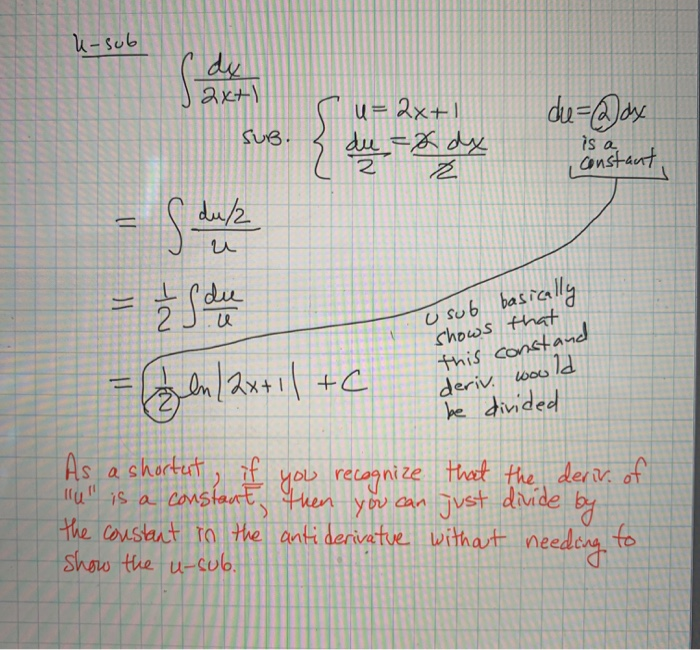 u-sub
∫ dx/(2x+1)
SUB. { u = 2x+1
du/2 = 2 dx/2
du = 2 dx
is a
constant
= ∫ (du/2)/u
= 1/2 ∫ du/u
= 1/2 ln|2x+1| + C
u sub basically
shows that
this constand
deriv. would
be divided
As a shortcut, if you recognize that the deriv. of
"u" is a constant, then you can just divide by
the constant in the antiderivatve without needing to
show the u-sub.